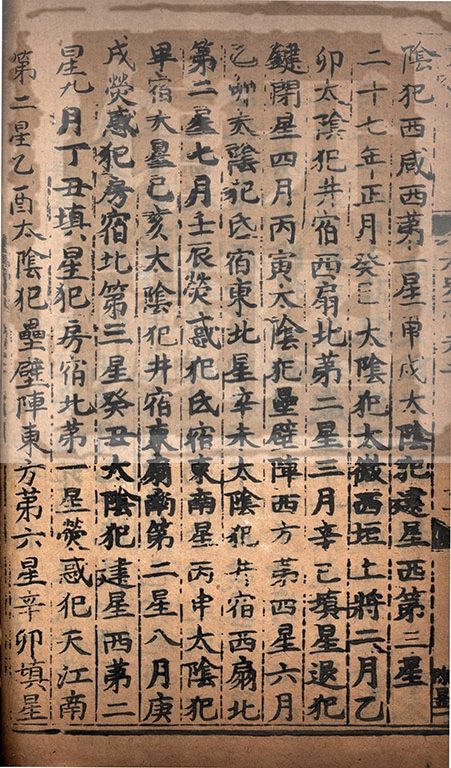 陰犯西咸西第一星甲戌太陰犯建星西第三星
二十七年正月癸巳太陰犯太微西垣上將二月乙
卯太陰犯井宿西扇北第二星三月辛巳填星退犯
鍵閉星四月丙寅太陰犯壘壁陣西方第四星六月
乙卯太陰犯氐宿東北星辛未太陰犯井宿西扇北
第二星七月壬辰熒惑犯氐宿東南星丙申太陰犯
畢宿大星己亥太陰犯井宿東扇南第二星八月庚
戌熒惑犯房宿北第三星癸丑太陰犯建星西第二
星九月丁丑填星犯房宿北第一星熒惑犯天江南
第二星乙酉太陰犯壘壁陣東方第六星辛卯填星